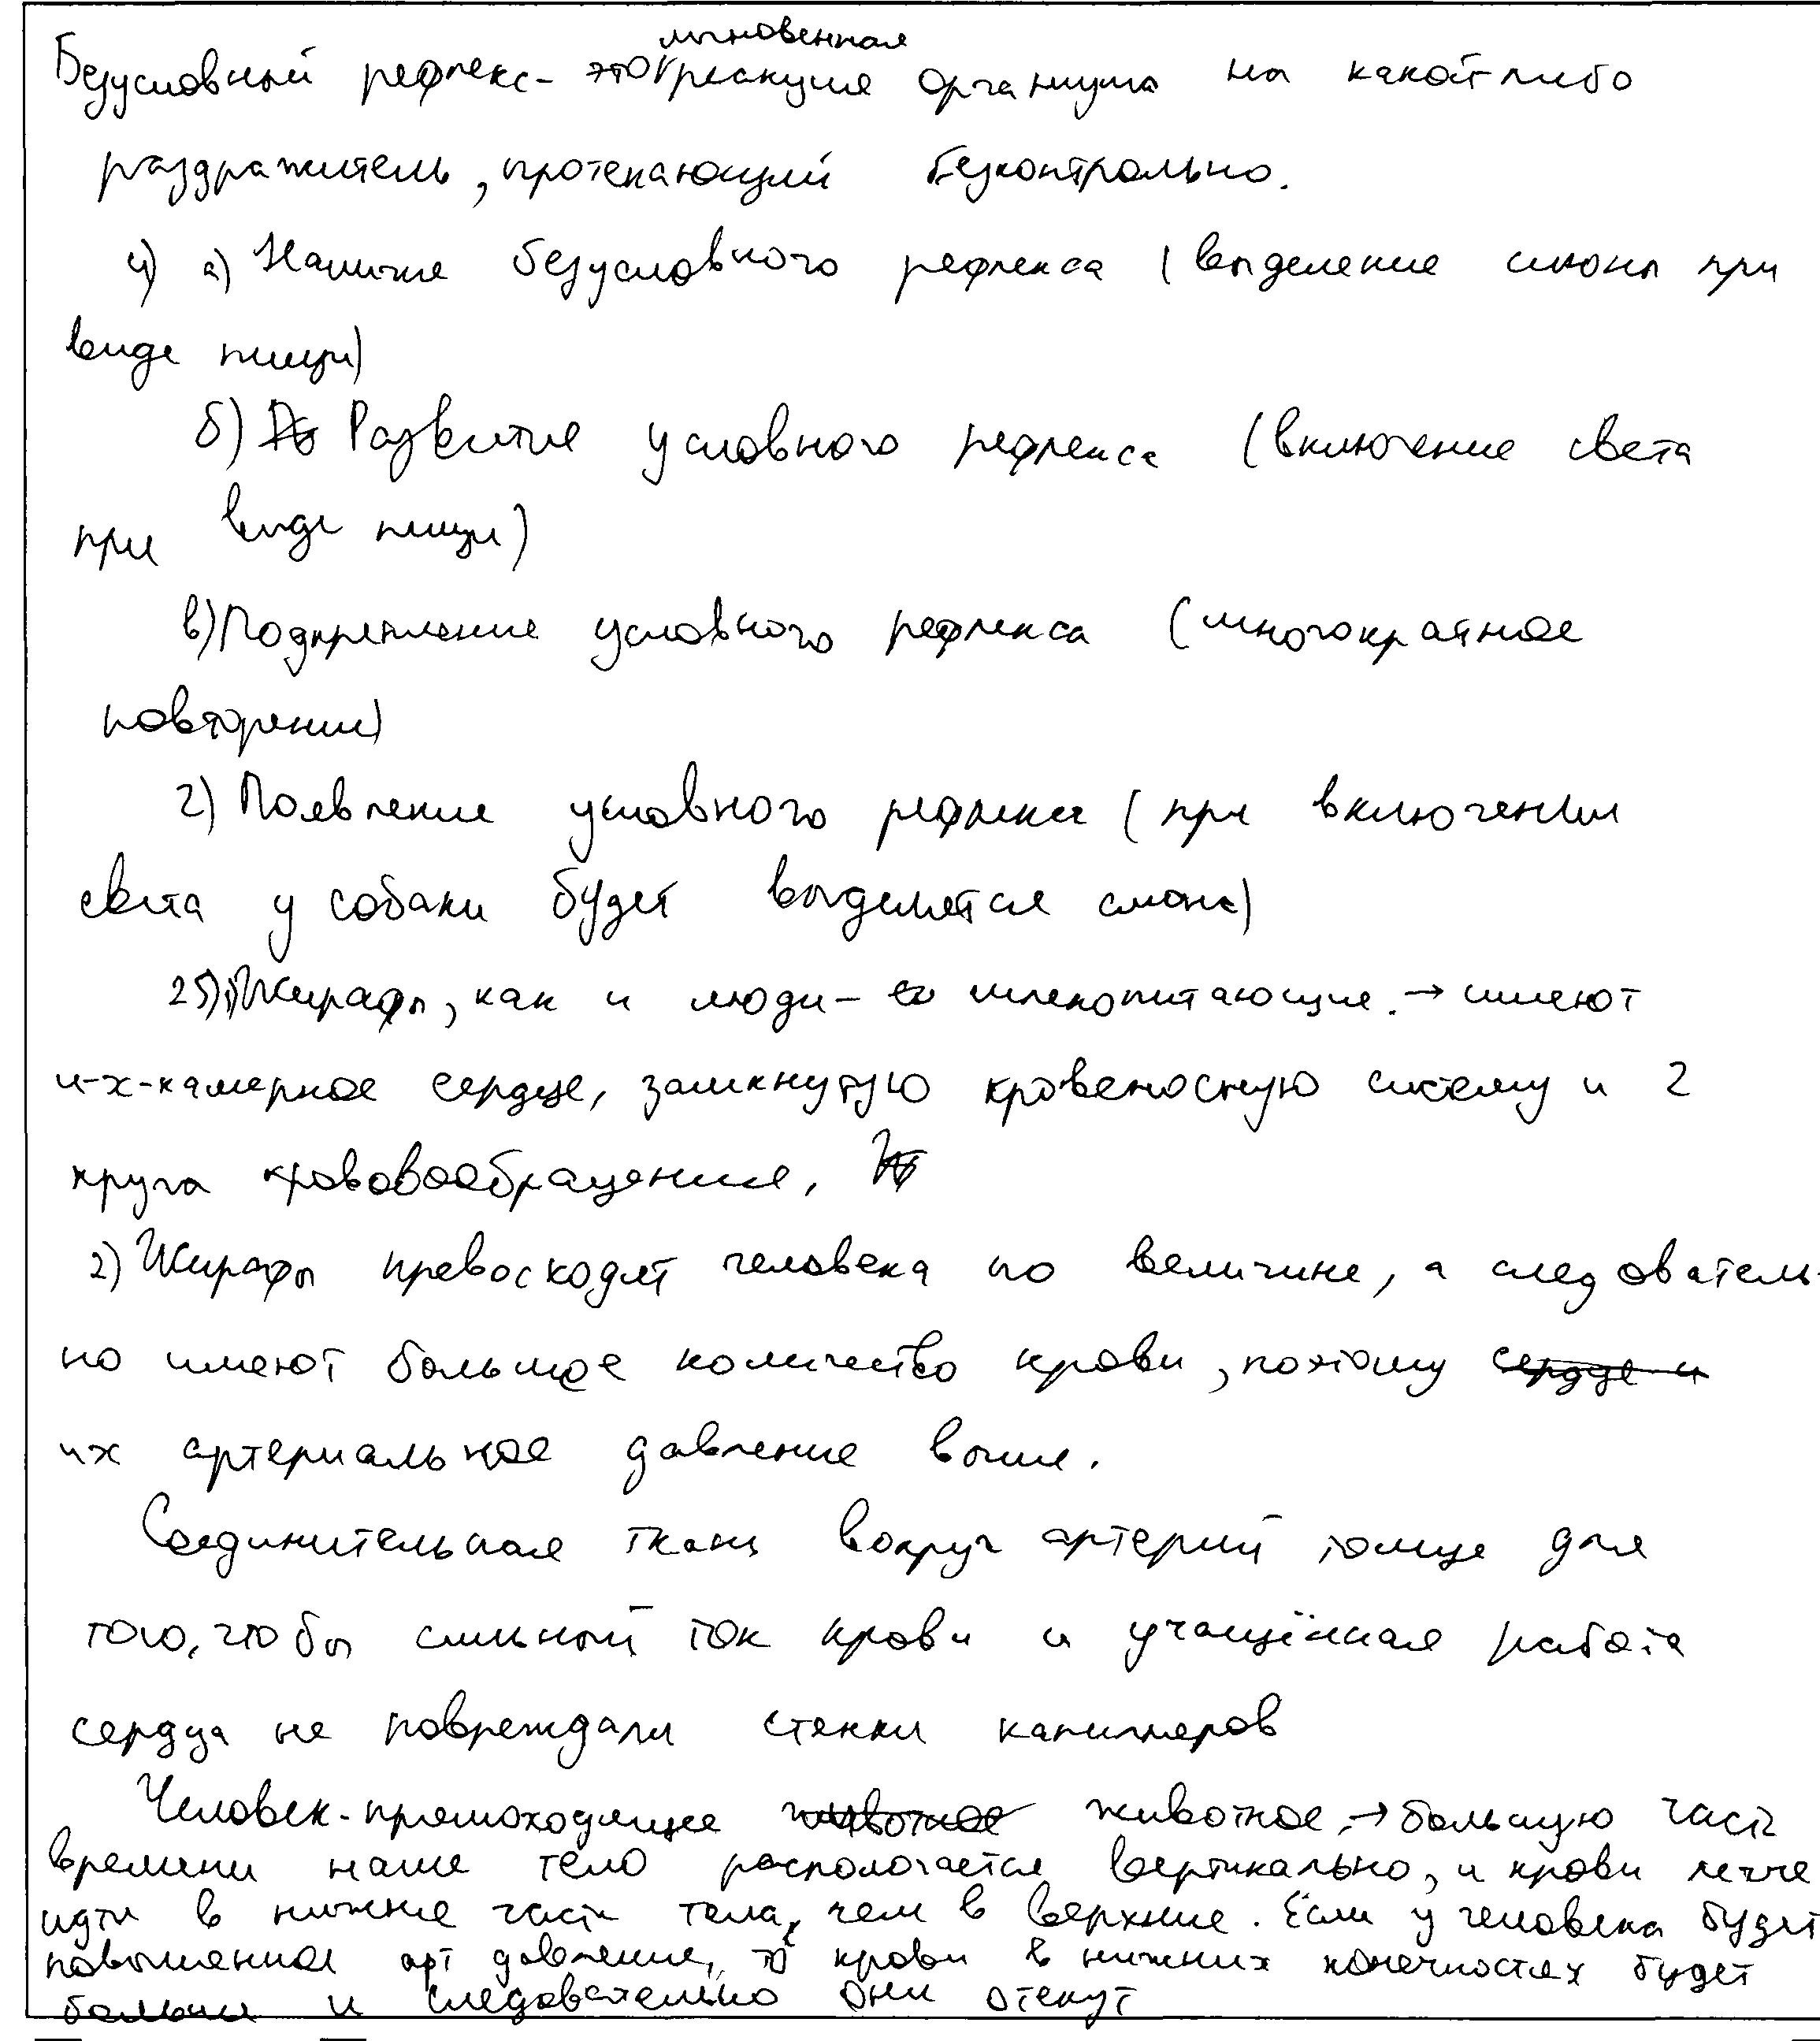 мгновенная
Безусловный рефлекс - это реакция организма на какой-либо
раздражитель, протекающий безконтрольно.
4) а) Наличие безусловного рефлекса (выделение слюны при
виде пищи)
б) Развитие условного рефлекса (включение света
при виде пищи)
в) Подкрепление условного рефлекса (многократное
повторение)
г) Появление условного рефлекса (при включении
света у собаки будет выделятся слюна)
25) 1) Жирафы, как и люди - млекопитающие. → имеют
4-х-камерное сердце, замкнутую кровеносную систему и 2
круга крововообращения,
2) Жирафы превосходят человека по величине, а следователь-
но имеют большое количество крови, поэтому сердце и
их артериальное давление выше.
Соединительная ткань вокруг артерий толще для
того, чтобы сильный ток крови и учащённая работа
сердца не повреждали стенки капилляров
Человек - прямоходящее животное животное, → большую часть
времени наше тело распологается вертикально, и крови легче
идти в нижние части тела, чем в верхние. Если у человека будет
повышенное арт давление, то крови в нижних конечностях будет
больше и следовательно они отекут